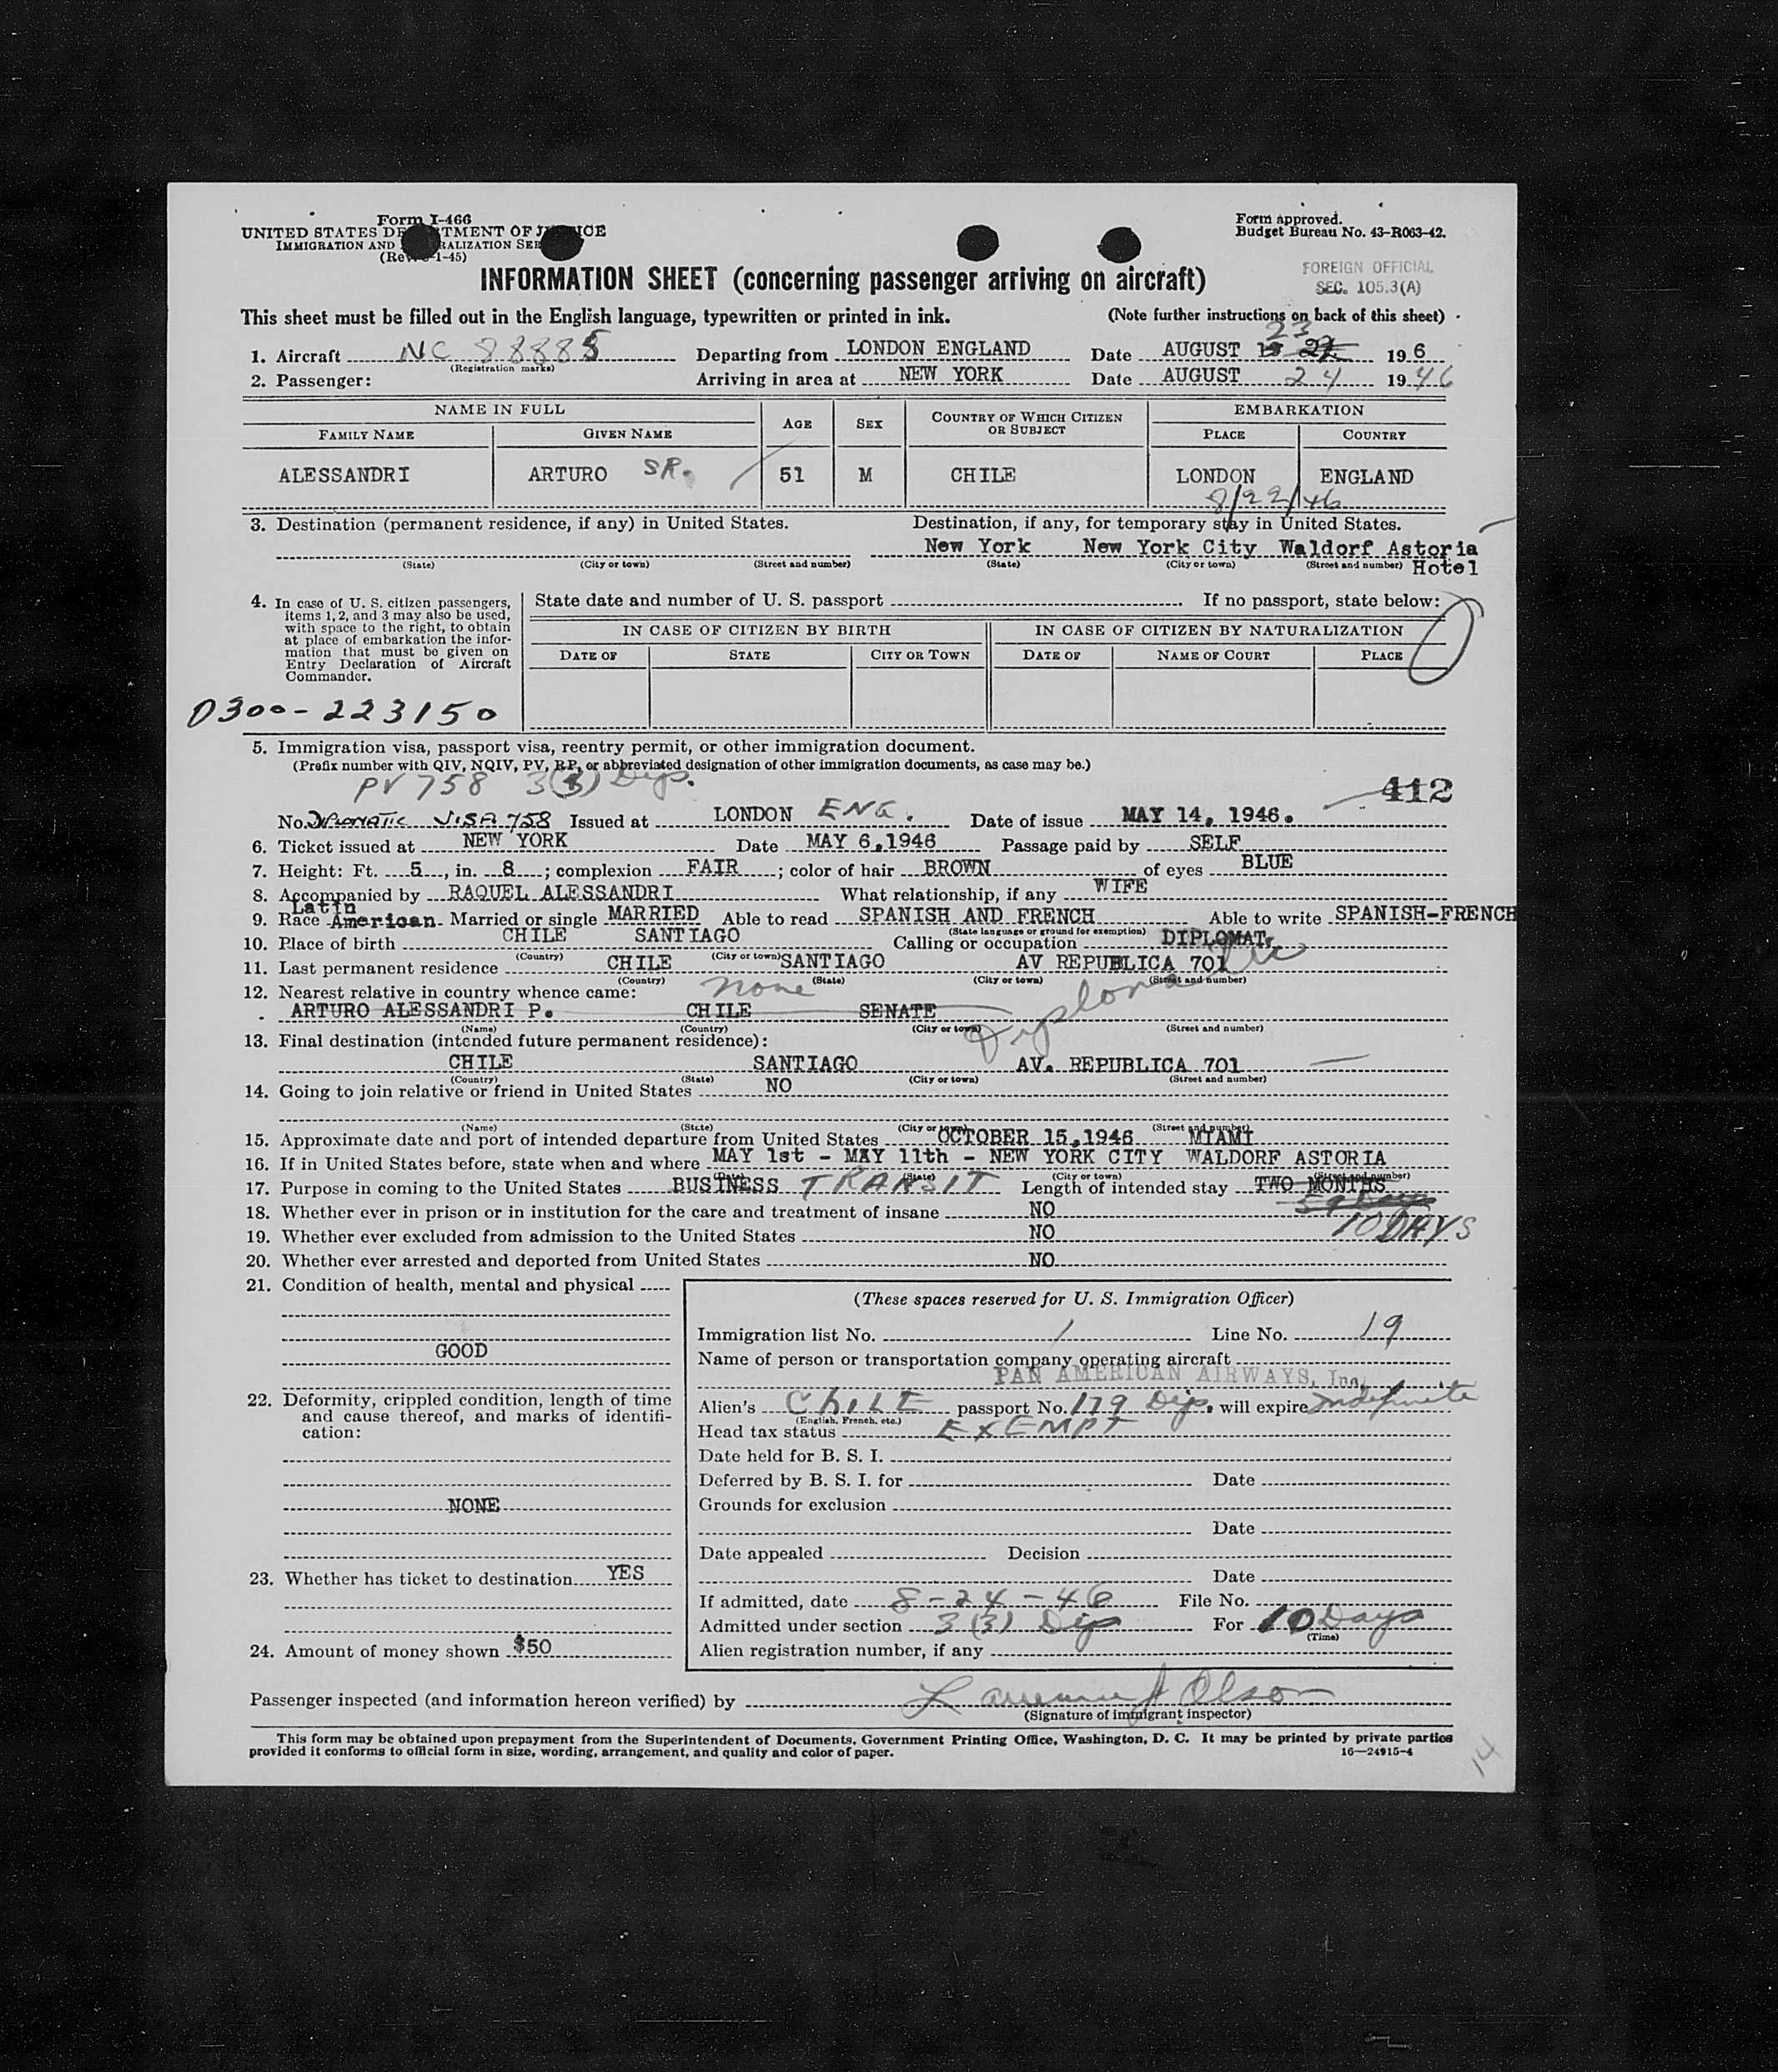 Form I-466
UNITED STATES DEPARTMENT OF JUSTICE
IMMIGRATION AND NATURALIZATION SER
(Rev. 1-45)
Form approved.
Budget Bureau No. 43-R063-42.
INFORMATION SHEET (concerning passenger arriving on aircraft)
FOREIGN OFFICIAL
SEC. 105.3(A)
This sheet must be filled out in the English language, typewritten or printed in ink.
(Note further instructions on back of this sheet)
23
1. Aircraft NC 88885 Departing from LONDON ENGLAND Date AUGUST 19 6
(Registration marks)
2. Passenger: Arriving in area at NEW YORK Date AUGUST 24 1946
NAME IN FULL AGE SEX COUNTRY OF WHICH CITIZEN OR SUBJECT EMBARKATION
FAMILY NAME GIVEN NAME PLACE COUNTRY
ALESSANDRI ARTURO SR. 51 M CHILE LONDON ENGLAND
8/22/46
3. Destination (permanent residence, if any) in United States. Destination, if any, for temporary stay in United States.
New York New York City Waldorf Astoria
(State) (City or town) (Street and number) (State) (City or town) (Street and number) Hotel
4. In case of U. S. citizen passengers,
items 1, 2, and 3 may also be used,
with space to the right, to obtain
at place of embarkation the infor-
mation that must be given on
Entry Declaration of Aircraft
Commander.
State date and number of U. S. passport If no passport, state below:
IN CASE OF CITIZEN BY BIRTH IN CASE OF CITIZEN BY NATURALIZATION
DATE OF STATE CITY OR TOWN DATE OF NAME OF COURT PLACE
0300-223150
5. Immigration visa, passport visa, reentry permit, or other immigration document.
(Prefix number with QIV, NQIV, PV, RP, or abbreviated designation of other immigration documents, as case may be.)
PV 758 3(3) Dip.
412
No. DIPLOMATIC VISA 758 Issued at LONDON ENG. Date of issue MAY 14, 1946.
6. Ticket issued at NEW YORK Date MAY 6,1946 Passage paid by SELF
7. Height: Ft. 5, in. 8; complexion FAIR; color of hair BROWN of eyes BLUE
8. Accompanied by RAQUEL ALESSANDRI What relationship, if any WIFE
Latin
9. Race American Married or single MARRIED Able to read SPANISH AND FRENCH Able to write SPANISH-FRENCH
(State language or ground for exemption)
10. Place of birth CHILE SANTIAGO Calling or occupation DIPLOMAT.
(Country) (City or town)
11. Last permanent residence CHILE SANTIAGO AV REPUBLICA 701
(Country) (State) (City or town) (Street and number)
12. Nearest relative in country whence came: none
ARTURO ALESSANDRI P. CHILE SENATE
(Name) (Country) (City or town) (Street and number)
13. Final destination (intended future permanent residence):
CHILE SANTIAGO AV. REPUBLICA 701
(Country) (State) (City or town) (Street and number)
14. Going to join relative or friend in United States NO
(Name) (State) (City or town) (Street and number)
15. Approximate date and port of intended departure from United States OCTOBER 15,1946 MIAMI
16. If in United States before, state when and where MAY 1st - MAY 11th - NEW YORK CITY WALDORF ASTORIA
(Date) (State) (City or town) (Street and number)
17. Purpose in coming to the United States BUSINESS TRANSIT Length of intended stay TWO MONTHS
18. Whether ever in prison or in institution for the care and treatment of insane NO
10 DAYS
19. Whether ever excluded from admission to the United States NO
20. Whether ever arrested and deported from United States NO
21. Condition of health, mental and physical
GOOD
22. Deformity, crippled condition, length of time
and cause thereof, and marks of identifi-
cation:
NONE
23. Whether has ticket to destination YES
24. Amount of money shown $50
(These spaces reserved for U. S. Immigration Officer)
Immigration list No. 1 Line No. 19
Name of person or transportation company operating aircraft
PAN AMERICAN AIRWAYS, Inc.
Alien's CHILE passport No. 179 Dip. will expire Indefinite
(English, French, etc.)
Head tax status EXEMPT
Date held for B. S. I.
Deferred by B. S. I. for Date
Grounds for exclusion
Date
Date appealed Decision
Date
If admitted, date 8-24-46 File No.
Admitted under section 3(3) Dip For 10 Days
(Time)
Alien registration number, if any
Passenger inspected (and information hereon verified) by Lawrence J Olson
(Signature of immigrant inspector)
This form may be obtained upon prepayment from the Superintendent of Documents, Government Printing Office, Washington, D. C. It may be printed by private parties
provided it conforms to official form in size, wording, arrangement, and quality and color of paper.
16—24915-4
14